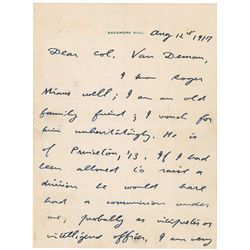 SAGAMORE HILL.
Aug 12th 1917
Dear Col. Van Deman,
I know Roger
well; I am an old
family friend; I vouch for
him unhesitatingly. He is
of Princeton, '13. If I had
been allowed to raise a
division he would have
had a commission under
me, probably as interpreter or
intelligence officer. I am very